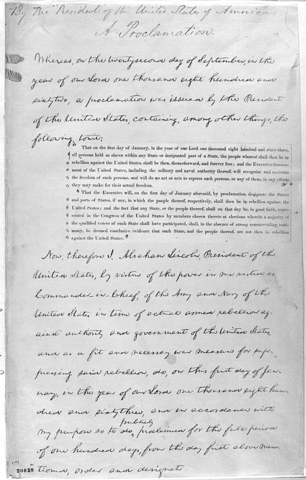 By the President of the United States of America:
A Proclamation.
Whereas, on the twentysecond day of September, in the
year of our Lord one thousand eight hundred and
sixtytwo, a proclamation was issued by the President
of the United States, containing, among other things, the
following, towit:
"That on the first day of January, in the year of our Lord one thousand eight hundred and sixty-three,
all persons held as slaves within any State or designated part of a State, the people whereof shall then be in
rebellion against the United States, shall be then, thenceforward, and forever free; and the Executive Government
of the United States, including the military and naval authority thereof, will recognize and maintain
the freedom of such persons, and will do no act or acts to repress such persons, or any of them, in any efforts
they may make for their actual freedom.
"That the Executive will, on the first day of January aforesaid, by proclamation, designate the States
and parts of States, if any, in which the people thereof, respectively, shall then be in rebellion against the
United States; and the fact that any State, or the people thereof, shall on that day be, in good faith, represented
in the Congress of the United States by members chosen thereto at elections wherein a majority of
the qualified voters of such State shall have participated, shall, in the absence of strong countervailing testimony,
be deemed conclusive evidence that such State, and the people thereof, are not then in rebellion
against the United States."
Now, therefore I, Abraham Lincoln, President of the
United States, by virtue of the power in me vested as
Commander-in-Chief, of the Army and Navy of the
United States in time of actual armed rebellion a-
gainst authority and government of the United States,
and as a fit and necessary war measure for sup-
pressing said rebellion, do, on this first day of Jan-
uary, in the year of our Lord one thousand eight hun-
dred and sixtythree, and in accordance with
my purpose so to do, publicly proclaimed for the full period
of one hundred days, from the day first above men-
tioned, order and designate